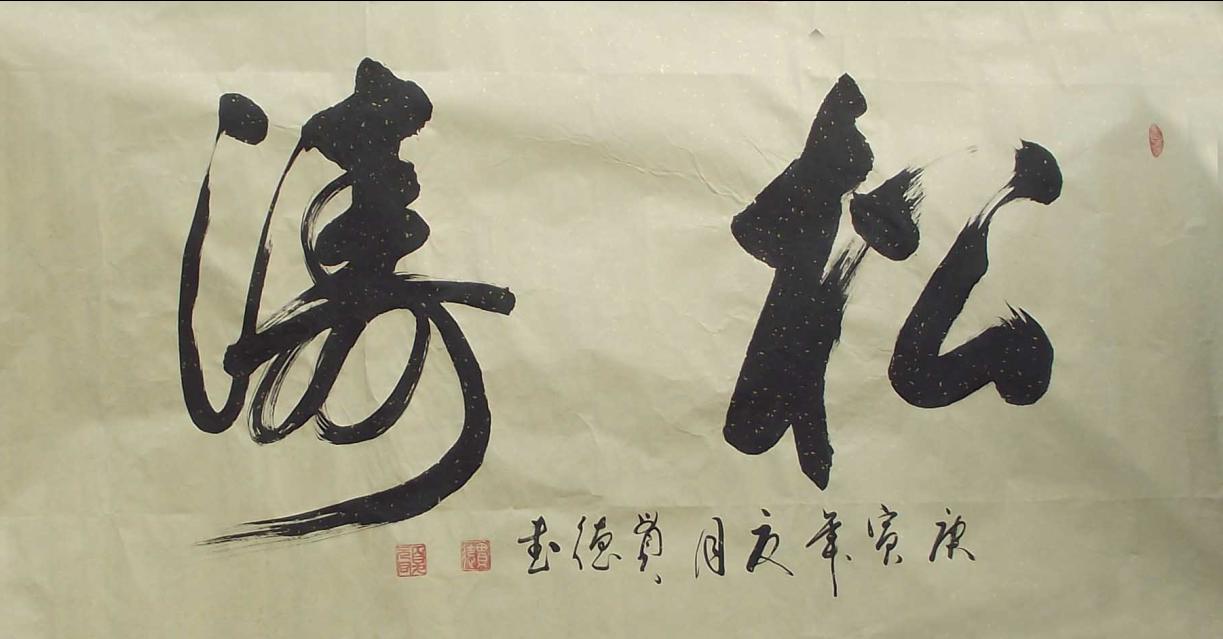 松濤
庚寅年夏月賈德書